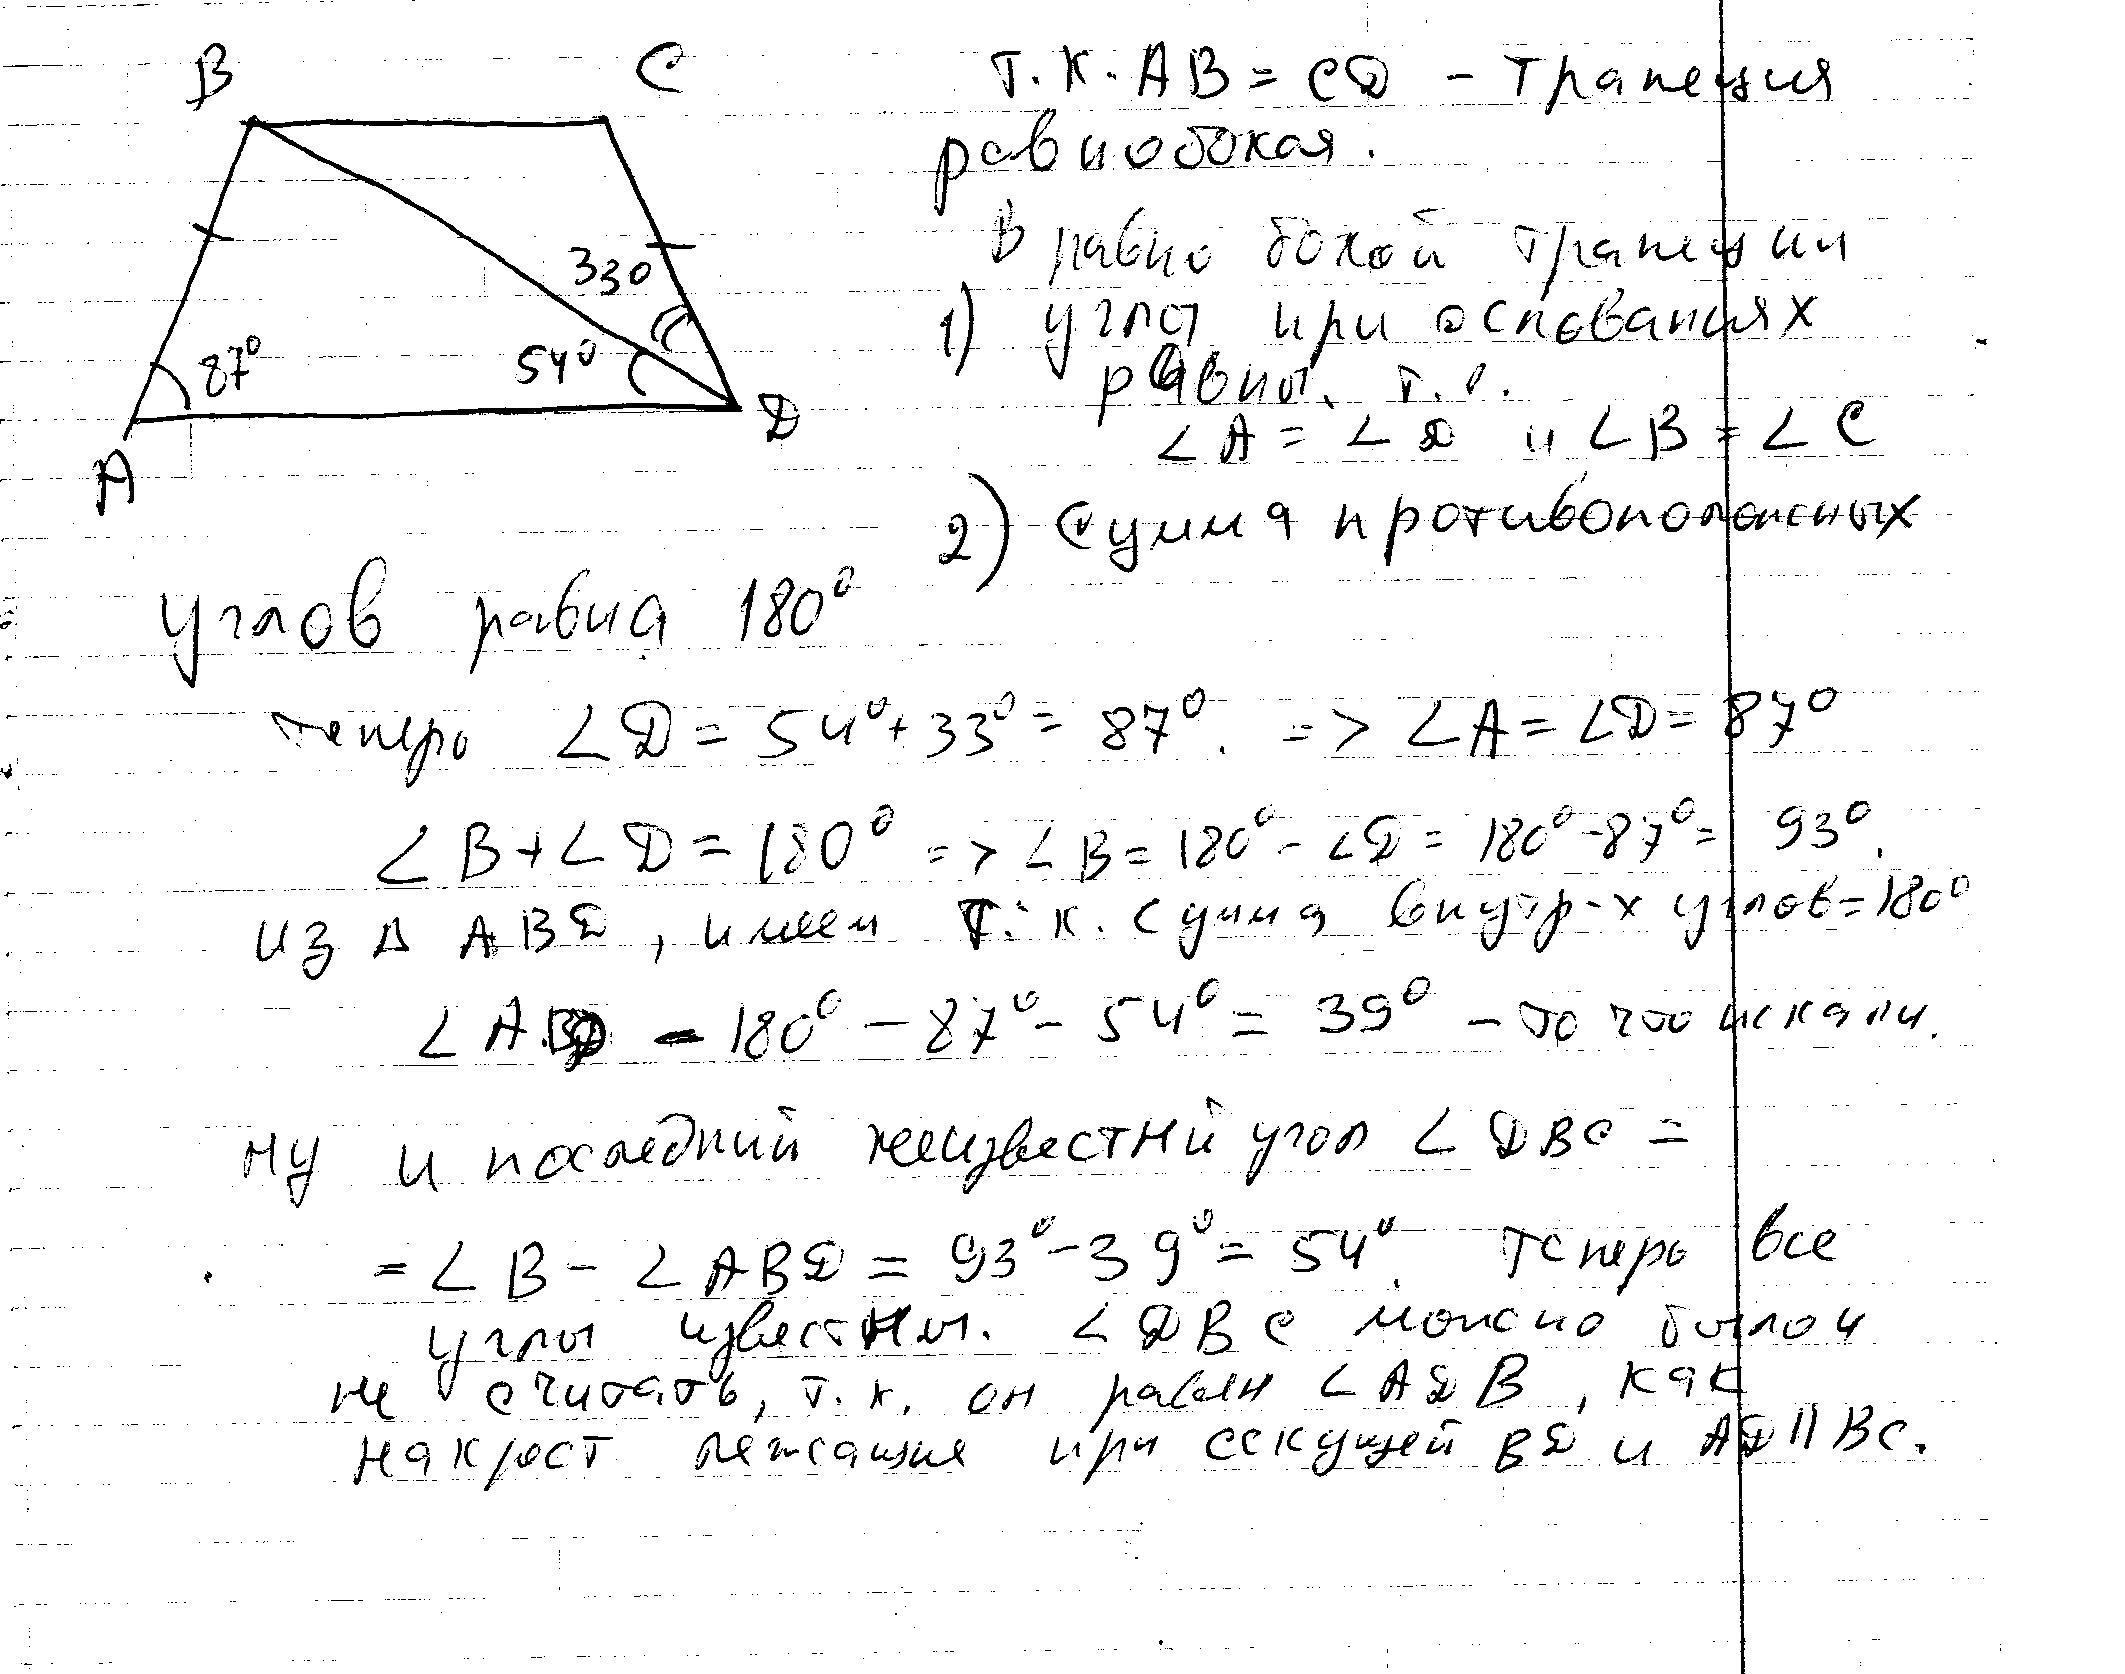 B
C
330
87°
54°
A
D
т.к. AB = CD – трапеция
равнобокая.
В равнобокой трапеции
1) угла при основаниях
равны, т.е.
∠A = ∠D и ∠B = ∠C
2) Сумма противоположных
углов равна 180°
теперь ∠D = 54° + 33° = 87°. => ∠A = ∠D = 87°
∠B + ∠D = 180° => ∠B = 180° - ∠D = 180° - 87° = 93°.
из Δ ABD, имеем т.к. сумма внутр-х углов = 180°
∠ABD = 180° - 87° - 54° = 39° - то что искали.
ну и последний неизвестний угол ∠DBC =
= ∠B - ∠ABD = 93° - 39° = 54°. теперь все
углы известны. ∠DBC можно было и
не считать, т.к. он равен ∠ADB, как
накрест лежащие при секущей BD и AD || BC.